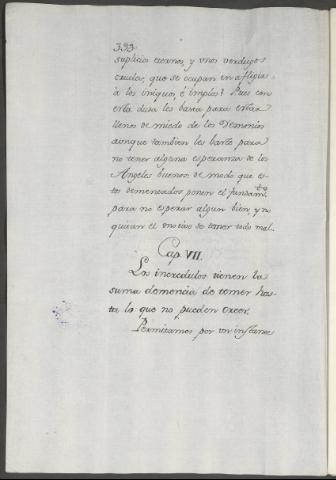 333
suplicios eternos, y unos verdugos
crueles, que se ocupan en afligir
à los iniquos, è impios? Pues con
esta duda les basta para estar
llenos de miedo de los Demonios
aunque tambien les basta para
no tener alguna esperanza de los
Angeles buenos: de modo que es-
tos dementados ponen el fundamto.
para no esperar algun bien, y no
quitan el motivo de temer todo mal.
Cap. VII.
Los incredulos tienen la
suma demencia de temer has-
ta lo que no pueden creer.
Permitamos por un instante